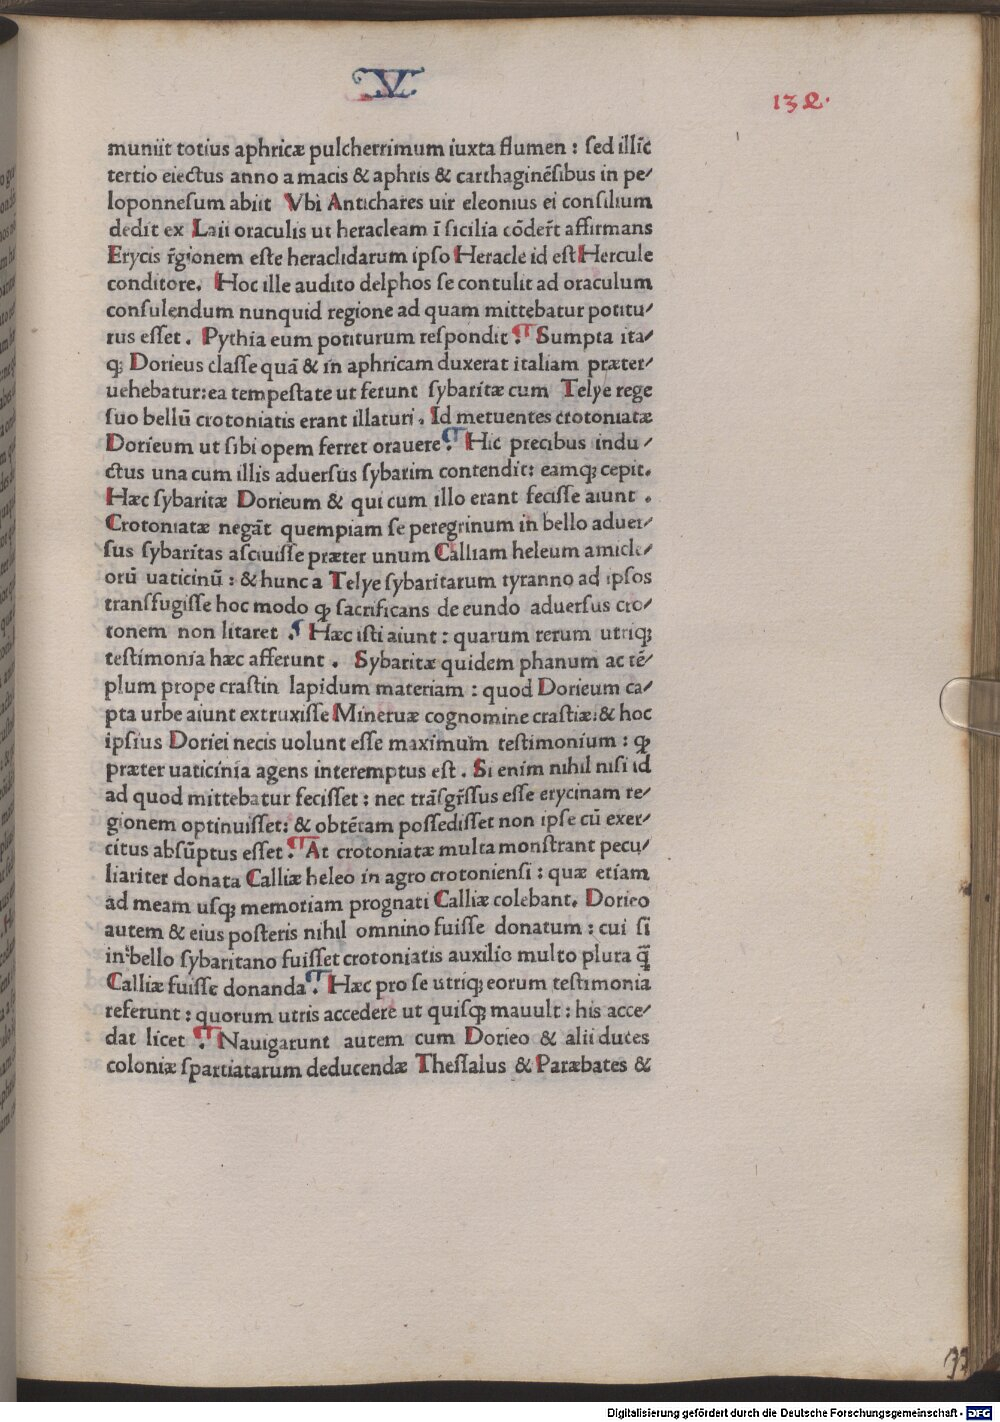 V
132.
muniit totius aphricæ pulcherrimum iuxta flumen : sed illīc
tertio eiectus anno a macis & aphris & carthaginēsibus in pe/
loponnesum abiit Vbi Antichares uir eleonius ei consilium
dedit ex Laii oraculis ut heracleam ī sicilia cōder̄t affirmans
Erycis r̄gionem este heraclidarum ipso Heracle id est Hercule
conditore. Hoc ille audito delphos se contulit ad oraculum
consulendum nunquid regione ad quam mittebatur potitu/
rus esset . Pythia eum potiturum respondit ¶ Sumpta ita/
q; Dorieus classe quā & in aphricam duxerat italiam præter/
uehebatur:ea tempestate ut ferunt sybaritæ cum Telye rege
suo bellū crotoniatis erant illaturi . Id metuentes crotoniatæ
Dorieum ut sibi opem ferret orauere ¶ Hic precibus indu /
ctus una cum illis aduersus sybarim contendit: eamq; cepit.
Hæc sybaritæ Dorieum & qui cum illo erant fecisse aiunt .
Crotoniatæ negāt quempiam se peregrinum in bello aduer/
sus sybaritas asciuisse præter unum Calliam heleum amicl/
orū uaticinū : & hunc a Telye sybaritarum tyranno ad ipsos
transfugisse hoc modo ꝙ sacrificans de eundo aduersus cro/
tonem non litaret . ¶ Hæc isti aiunt : quarum rerum utriq;
testimonia hæc afferunt . Sybaritæ quidem phanum ac tē/
plum prope crastin lapidum materiam : quod Dorieum ca/
pta urbe aiunt extruxisse Mineruæ cognomine crastiæ:& hoc
ipsius Doriei necis uolunt esse maximum testimonium : ꝙ
præter uaticinia agens interemptus est . Si enim nihil nisi id
ad quod mittebatur fecisset : nec trāsgr̄ssus esse erycinam re/
gionem optinuisset: & obtētam possedisset non ipse cū exer/
citus absūptus esset ¶ At crotoniatæ multa monstrant pecu/
liariter donata Calliæ heleo in agro crotoniensi : quæ etiam
ad meam usq; memoriam prognati Calliæ colebant. Dorieo
autem & eius posteris nihil omnino fuisse donatum : cui si
in bello sybaritano fuisset crotoniatis auxilio multo plura q̄
Calliæ fuisse donanda ¶ Hæc pro se utriq; eorum testimonia
referunt : quorum utris accedere ut quisq; mauult : his acce/
dat licet ¶ Nauigarunt autem cum Dorieo & alii duces
coloniæ spartiatarum deducendæ Thessalus & Paræbates &
Digitalisierung gefördert durch die Deutsche Forschungsgemeinschaft - DFG